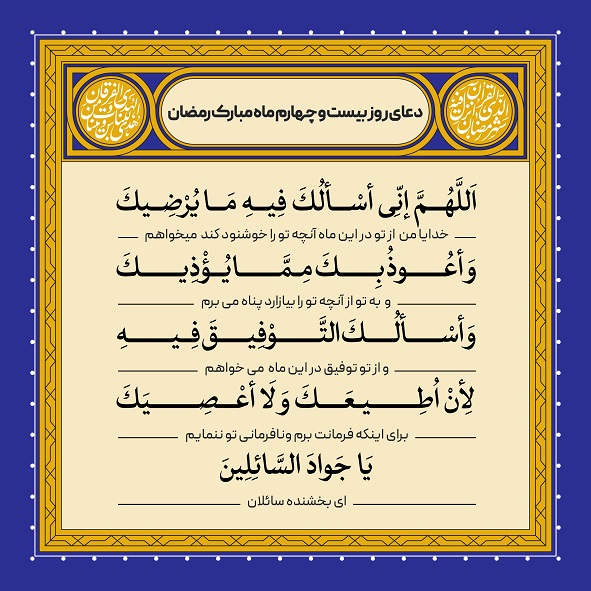 دعای روز بیست و چهارم ماه مبارک رمضان
شهر رمضان الذی أنزل فیه القرآن
هدی للناس و بینات من الهدی و الفرقان
اَللَّهُمَّ إنِّی أسْألُكَ فِیهِ مَا یُرْضِیكَ
خدایا من از تو در این ماه آنچه تو را خوشنود کند میخواهم
وَأعُوذُ بِكَ مِمَّا یُؤْذِیكَ
و به تو از آنچه تو را بیازارد پناه می برم
وَأسْألُكَ التَّوْفِیقَ فِیهِ
و از تو توفیق در این ماه می خواهم
لِأنْ اُطِیعَكَ وَلَا أعْصِیَكَ
برای اینکه فرمانت برم ونافرمانی تو ننمایم
یَا جَوادَ السَّائِلِینَ
ای بخشنده سائلان